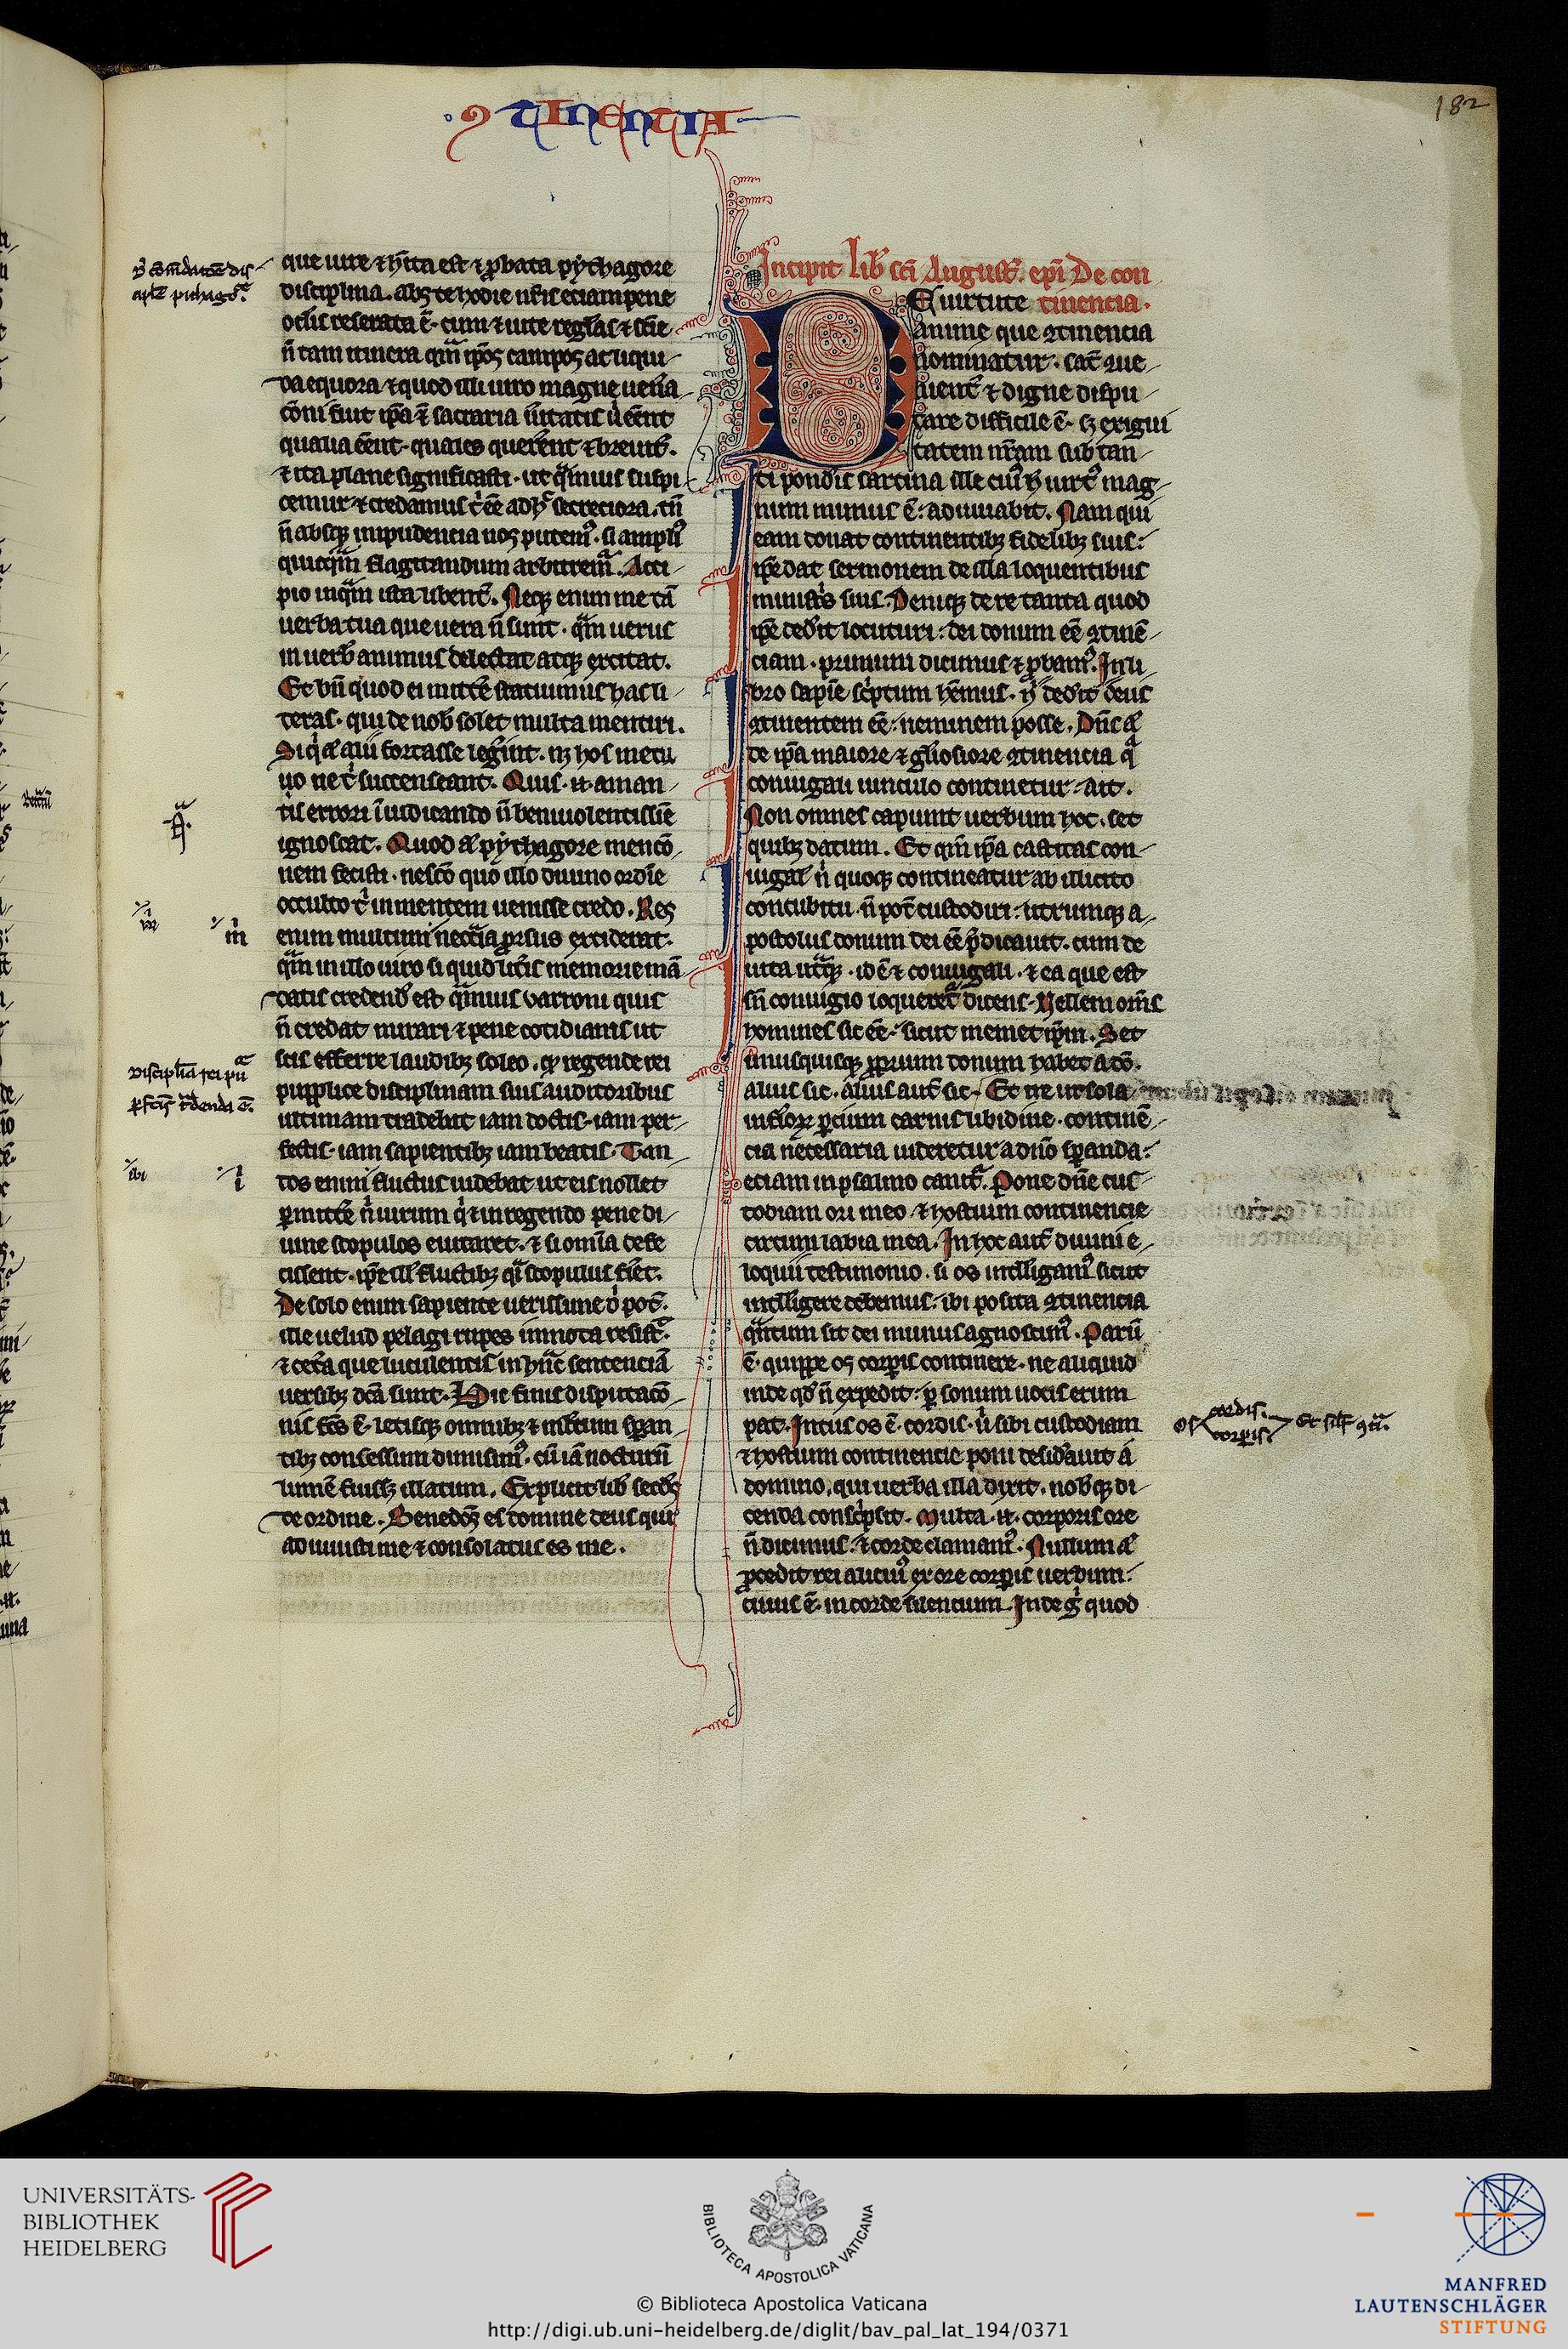 ꝯTINENTIA
182
que iure ⁊ hita est ⁊ ꝓbata pythagore
disciplina. abs te hodie nr̃is eciam pene
oclis reserata ẽ. cum ⁊ uite reglas ⁊ scie
ñ tam itinera qm̃ ip̃os campos ac liqui
da equora ⁊ quod illi uiro magne uen̾a
cõni fuit ip̃a ⁊̃ sacraria uitatis u̾ eẽnt
qualia eẽnt. quales quererent ⁊ breuit̾.
⁊ ita plane significasti. ut qm̃uis suspi
cemur ⁊ credamus t̾ eẽ adhͨ secreciora. tñ
ñ absqꝫ impudencia nos putemꝰ. si ampliꝰ
quicqm̃ flagitandum arbitrem̃. Acci
pio inqm̃ ista libent̾. Neqꝫ enim me tã
uerba tua que uera ñ sunt. qm̃ uerus
in uerb̾ animus delectat atqꝫ excitat.
Et bñ quod ei mitte̾ statuimus has li
teras. qui de nob̾ solet multa mentiri.
Siq̾ aͤ alii fortasse leg̾int. nꝫ hos metu
uo ne t̾ succenseant. Quis .n. aman
tis errori ĩ iudicando ñ beniuolentissĩe
ignoscat. Quod aͤ pythagore mencõ
nem fecisti. nescõ quo illo diuino ordĩe
occulto t̾ in mentem uenisse credo. Res
enim multum neccia ꝓrsus exciderat.
qm̃ in illo uiro si quid lit̾is memorie mã
datis credend̾ est qm̃uis varroni quis
ñ credat mirari ⁊ pene cotidianis ut
scis efferre laudibꝫ soleo. qꝫ regende rei
pupplice disciplinam suis auditoribus
ultimam tradebat iam doctis. iam per
fectis. iam sapientibꝫ iam beatis. Tan
tos enim fluctus uidebat ut eis nollet
ꝑmitte̾ ñ uirum q̾ ⁊ in regendo pene di
uine scopulos euitaret. ⁊ si omĩa defe
cissent. ip̃e ill̾ fluctibꝫ q̃i scopulus fiet̾.
De solo enim sapiente uerissime d̾ pot̾.
ille uelud pelagi rupes inmota resist̾.
⁊ cet̾a que luculentis in hñc sentenciã
uersibꝫ dcã sunt. Hic finis disputacõ
nis fcs̃ ẽ. letisqꝫ omnibꝫ ⁊ multum speran
tibꝫ consessum dimisimꝰ. cũ iã nocturñ
lumẽ fuissꝫ illatum. Explicit lib̾ secds̾
de ordine. Benedcs̾ es domine deus qui
adiuuisti me ⁊ consolatus es me.
Incipit lib̾ sci̾ August̾. epĩ De con
tinencia.
DE uirtute
anime que ꝯtinencia
nominatur. sat̾ ꝯue
nient̾ ⁊ digne dispu
tare difficile ẽ. sꝫ exigui
tatem nrãm sub tan
ti pondis̾ sarcina ille cuiꝰ h̾ uirt̾ mag
num munus ẽ: adiuuabit. Nam qui
eam donat continentibꝫ fidelibꝫ suis:
ip̃e dat sermonem de illa loquentibus
ministris suis. Denique de re tanta quod
ip̃e dederit locuturi: dei donum eẽ ꝯtinẽ
ciam. primum dicimus ⁊ ꝓbamꝰ. In li
bro sapiẽ sc̾ptum hẽmus. qͥ ded̾it deus
ꝯtinentem eẽ: neminem posse. Dñs aͤ
de ip̃a maiore ⁊ gl̾iosiore ꝯtinencia q̃
coniugali uinculo continetur. ait.
Non omnes capiunt uerbum hoc. set
quibꝫ datum. Et qm̃ ip̃a castitas con
iugal̾ ñ quoqꝫ contineatur ab illicito
concubitu. ñ pot̾ custodiri. utrumqꝫ a
postolus donum dei eẽ p̃dicauit. cum de
uita utãqꝫ. id ẽ ⁊ coniugali. ⁊ ea que est
sñ coniugio loqueret̾ dicens. Uellem oms̃
homines sic eẽ. sicut memet ip̃m. Set
unusquisqꝫ ꝓprium donum habet a dõ.
alius sic. alius aut̾ sic. Et ne ut sola
inferiorꝝ ꝑcium carnis libidine. continẽ
cia nẽcessaria uideretur a dño speranda:
eciam in psalmo cantat̾. Pone dñe cus
todiam ori meo. ⁊ hostium continencie
circum labia mea. In hoc aut̾ diuini e
loquii testimonio. si os intelligamꝰ sicut
intelligere debemus. ibi posita ꝯtinencia
qñtum sit dei munus agnoscimꝰ. Parũ
ẽ. quippe os corꝑis continere. ne aliquid
inde qd̾ ñ expedit: ꝑ sonum uocis erum
pat. Intus os ẽ. cordis. u̾ sibi custodiam
⁊ hostium continencie poni desid̾auit a
domino. qui uerba illa dixit. nob̾qꝫ di
cenda consc̾psit. Multa .n. corporis ore
ñ dicimus: ⁊ corde clamamꝰ. Nullum aͤ
ꝓcedit rei aliciuꝰ ex ore corꝑis uerbum:
cuius ẽ. in corde silencium. Inde g̾ quod
disciplĩa rei pũ
ꝑfct̾is t̾denda ẽ.
os
cordis.
corꝑis.
UNIVERSITÄTS-
BIBLIOTHEK
HEIDELBERG
BIBLIOTECA APOSTOLICA VATICANA
© Biblioteca Apostolica Vaticana
http://digi.ub.uni-heidelberg.de/diglit/bav_pal_lat_194/0371
MANFRED
LAUTENSCHLÄGER
STIFTUNG